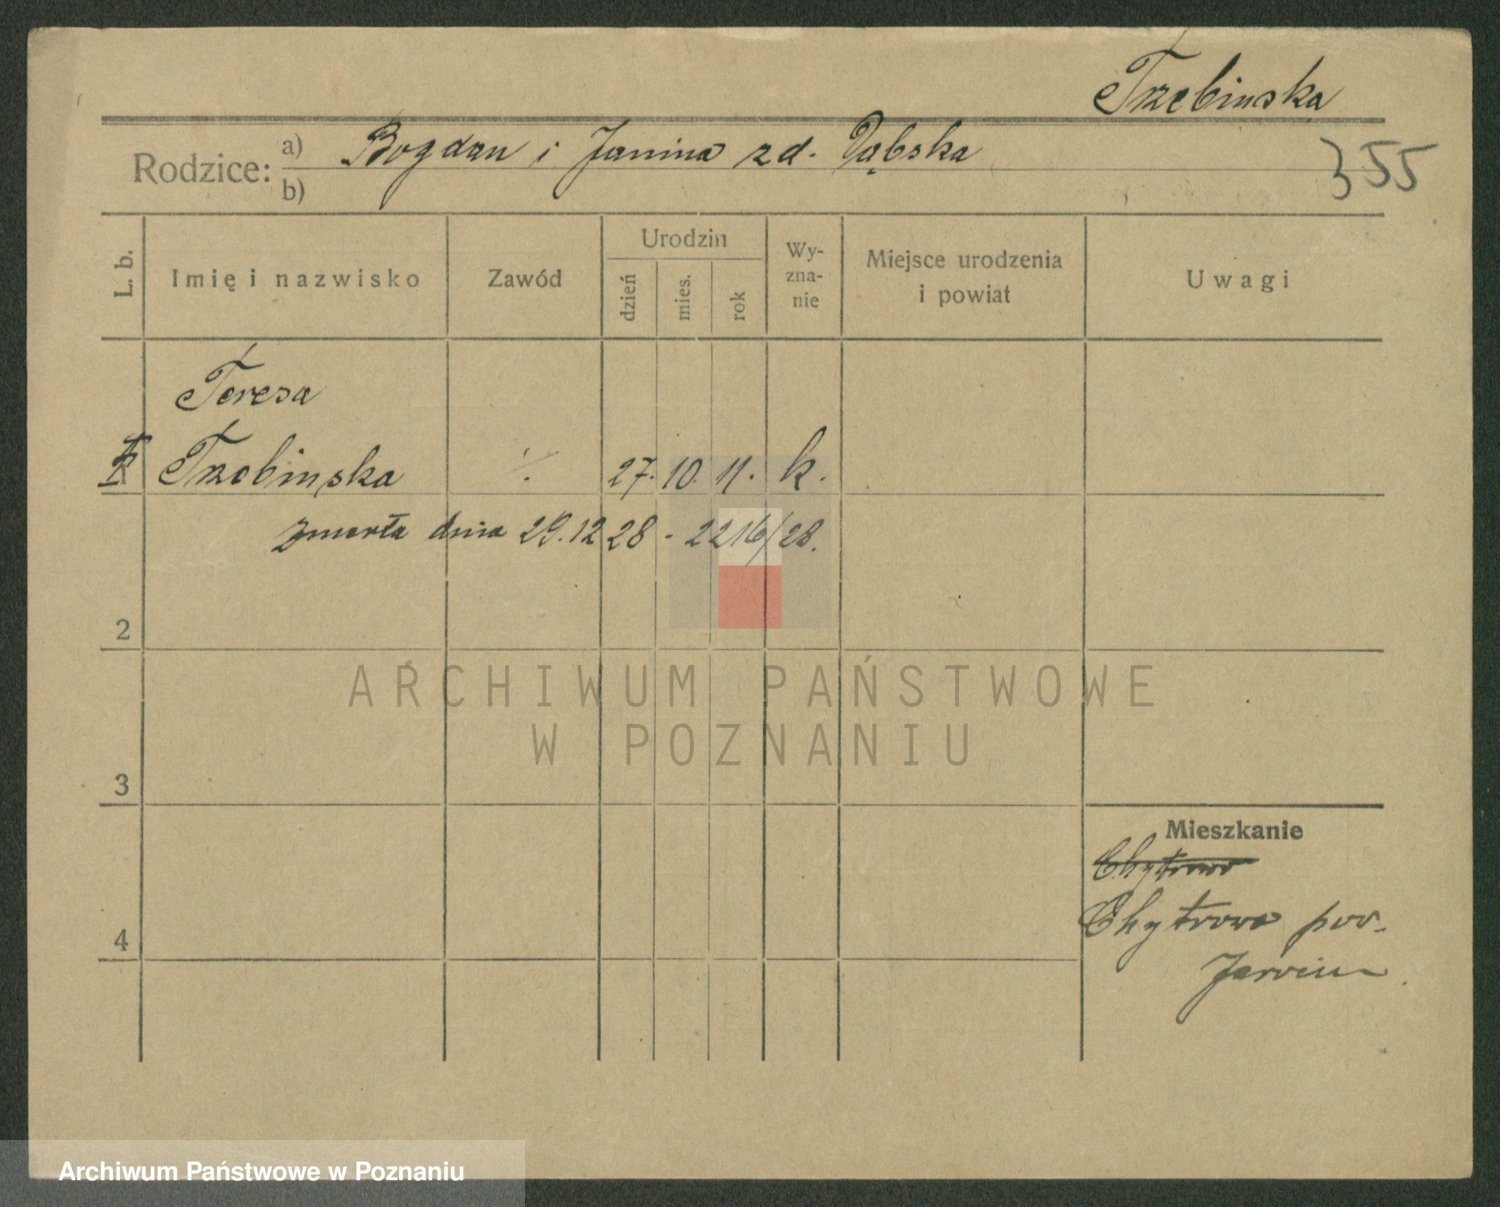 Trzebinska
Rodzice: a) Bogdan i Janina zd. Dąbska
b)
355
L. b.
Imię i nazwisko
Zawód
Urodzin
dzień
mies.
rok
Wy-
zna-
nie
Miejsce urodzenia
i powiat
Uwagi
Teresa
Trzebinska ·/. 27. 10. 11. k.
zmarła dnia 29.12 28 - 2216/28.
2
3
4
Mieszkanie
Chytrowo
Chytrowo pow.
Jarocin
ARCHIWUM PAŃSTWOWE
W POZNANIU
Archiwum Państwowe w Poznaniu